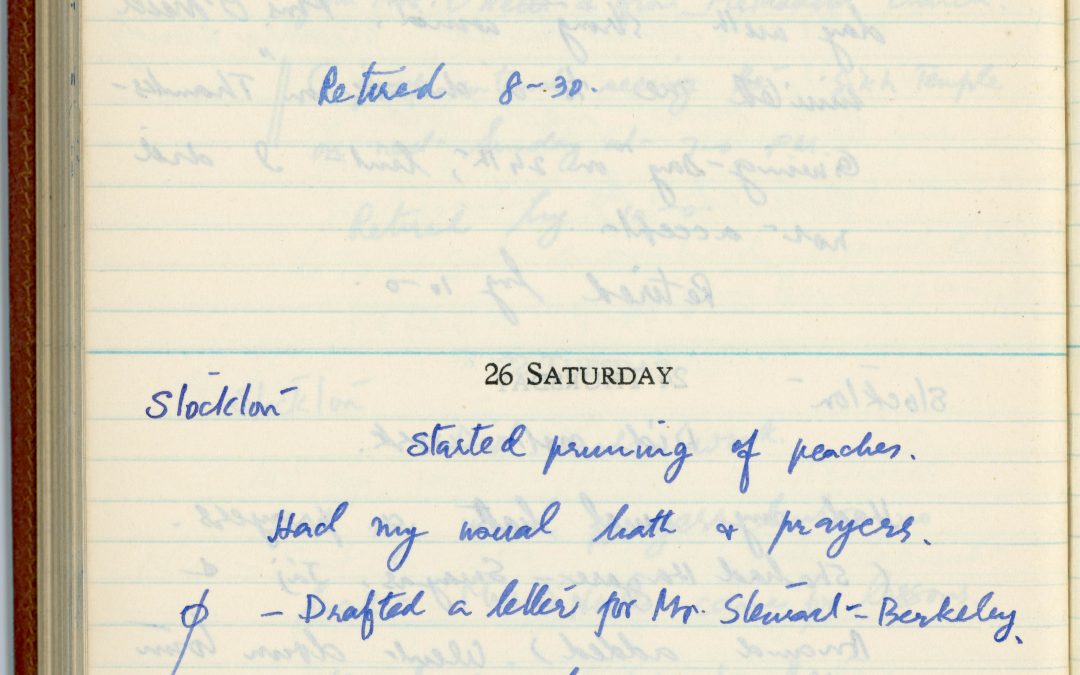 Retired 8-30.
26 SATURDAY
Stockton
Started pruning of peaches.
Had my usual bath & prayers.
φ - Drafted a letter for Mr. Stewart - Berkeley.